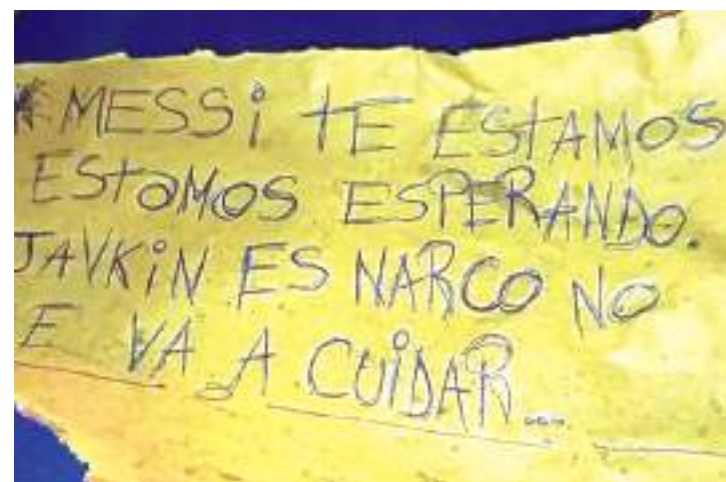 MESSi tE EStAMOS
EStaMOS ESPERANDO.
JAVKiN ES NARCO NO
E VA A CUiDAR